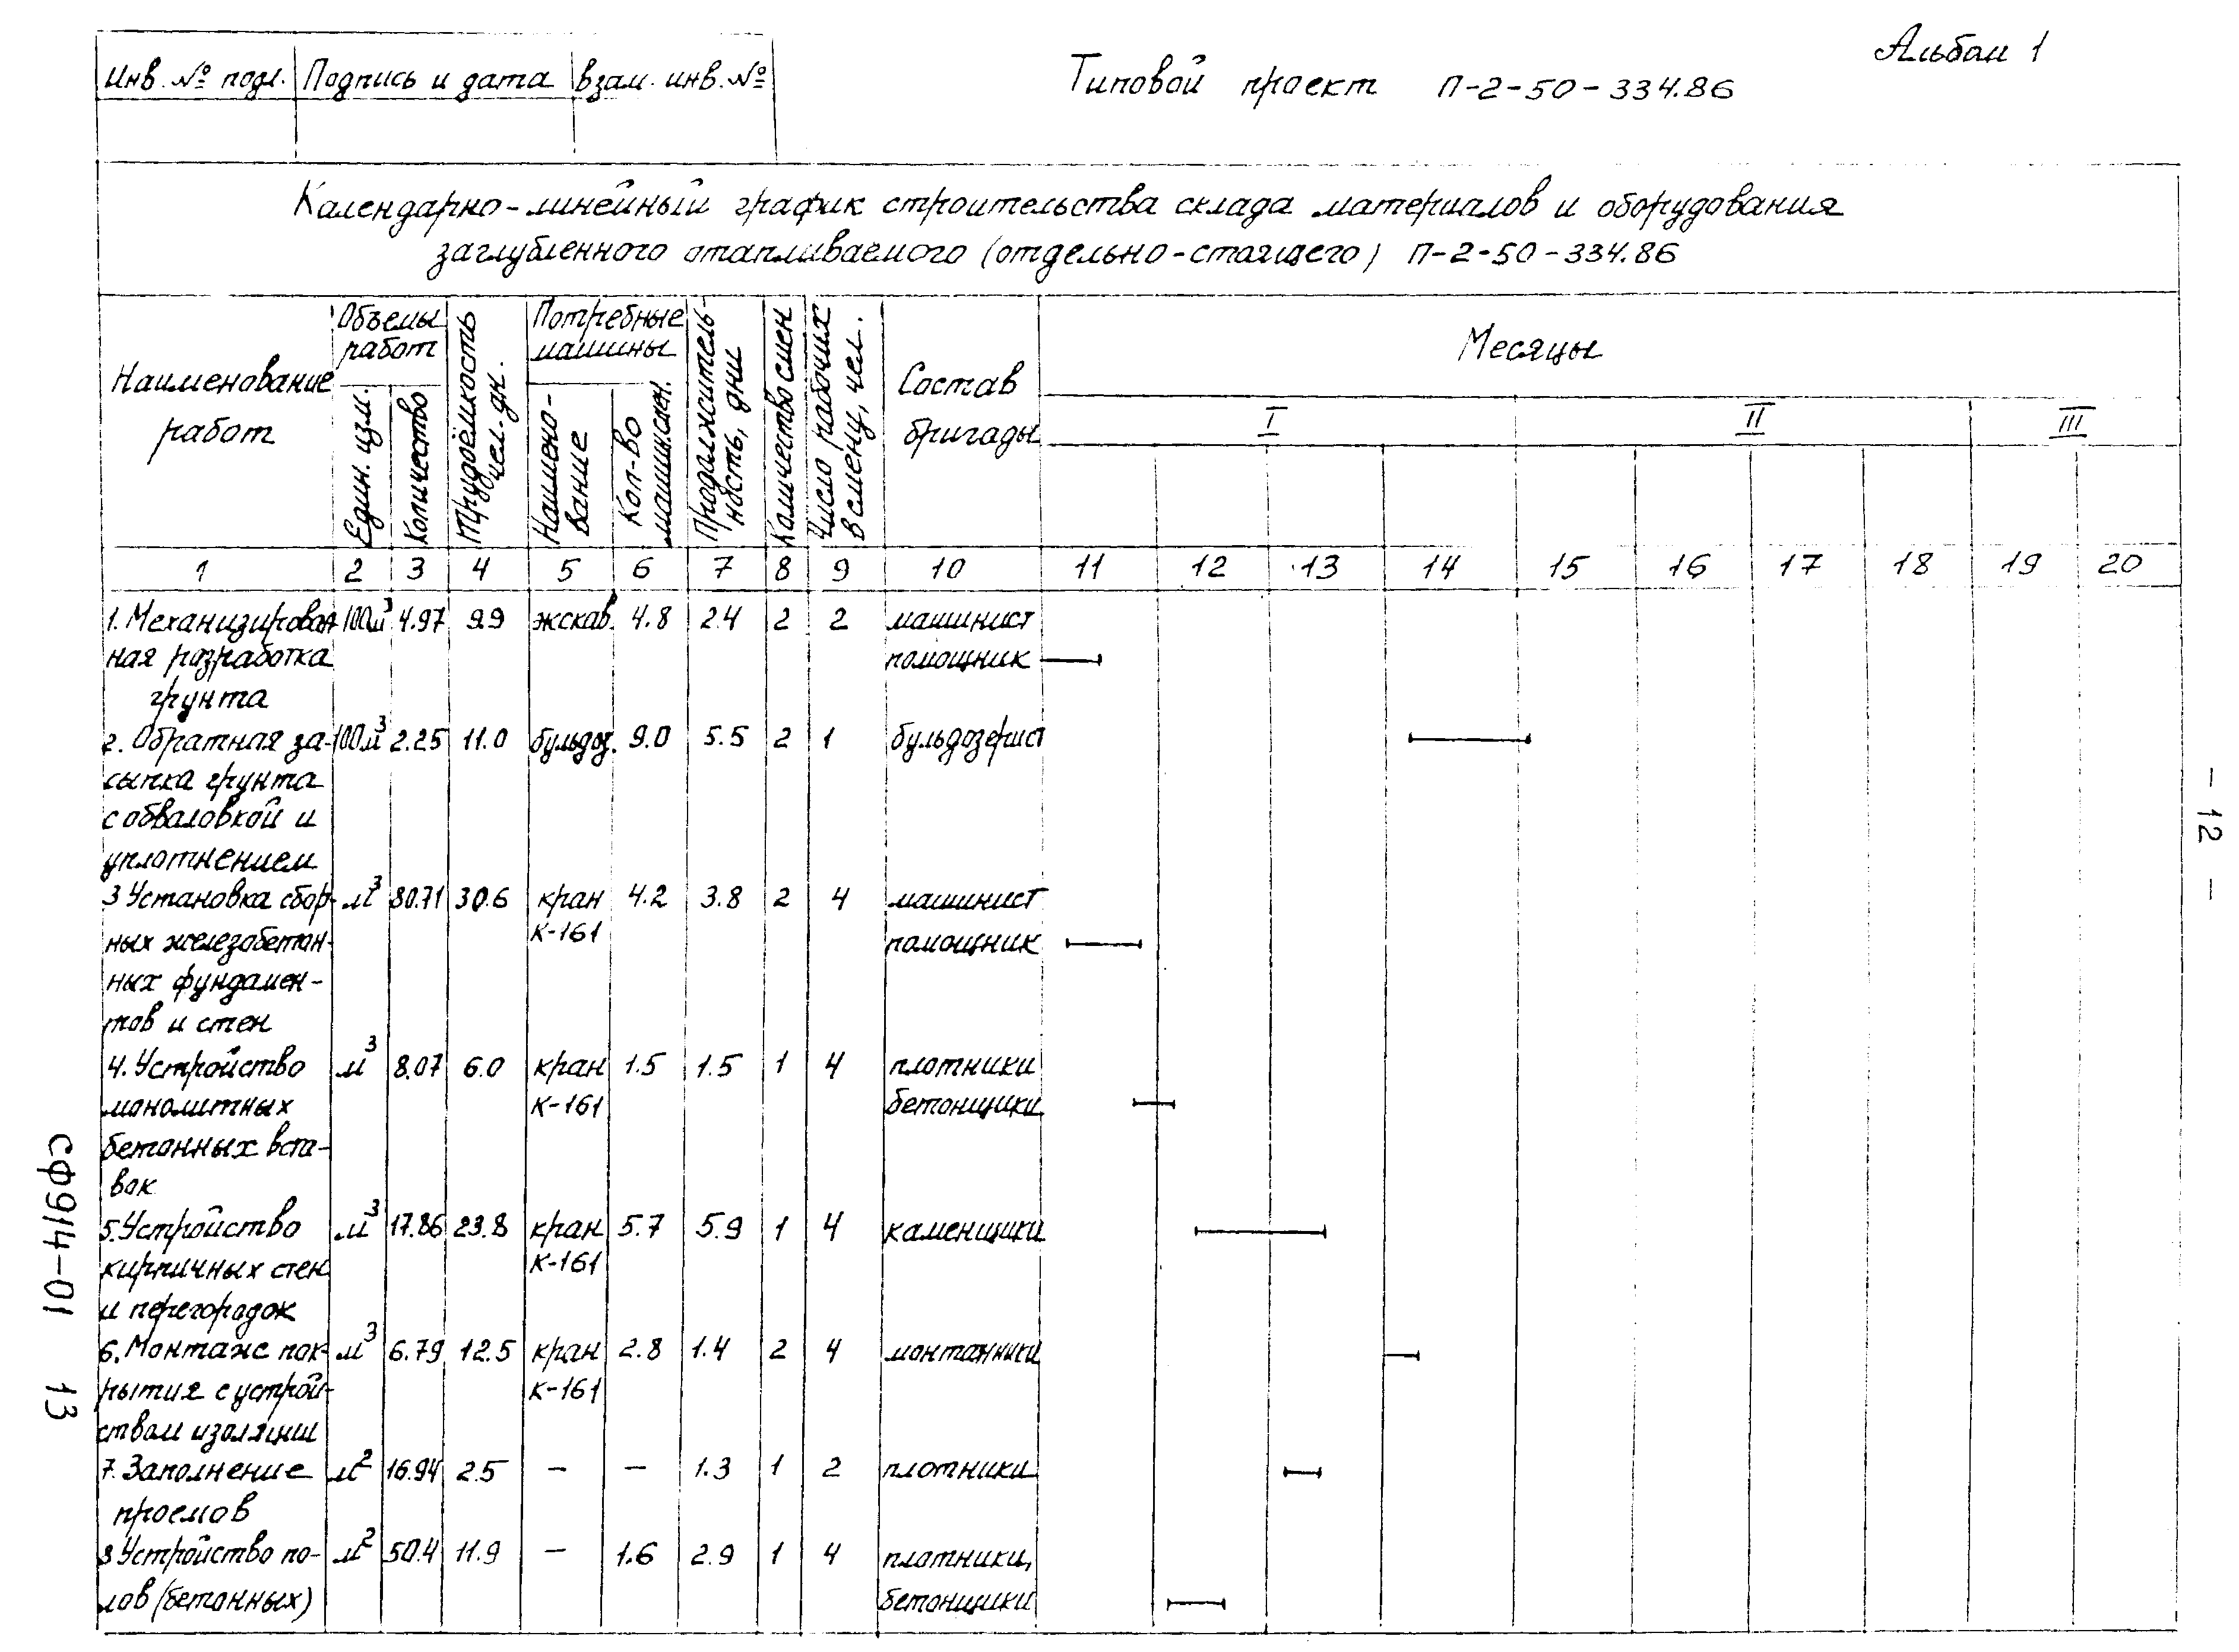 Альбом 1
Инв. № подл. Подпись и дата Взам. инв. №
Типовой проект П-2-50-334.86
Календарно-линейный график строительства склада материалов и оборудования
заглубленного отапливаемого (отдельно-стоящего) П-2-50-334.86
Наименование работ
Объемы работ
Един. изм.
Количество
Трудоёмкость чел.-дн.
Потребные машины
Наимено-
вание
Кол-во
машин.смен.
Продолжитель-
ность, дни
Количество смен
Число рабочих
в смену, чел.
Состав
бригады
Месяцы
I II III
1 2 3 4 5 6 7 8 9 10 11 12 13 14 15 16 17 18 19 20
1. Механизирован- 100м³ 4.97 9.9 экскав. 4.8 2.4 2 2 машинист
ная разработка помощник
грунта
2. Обратная за- 100м³ 2.25 11.0 бульдоз. 9.0 5.5 2 1 бульдозерист
сыпка грунта
с обваловкой и
уплотнением
3 Установка сбор- м³ 80.71 30.6 кран 4.2 3.8 2 4 машинист
ных железобетон- К-161 помощник
ных фундамен-
тов и стен
4. Устройство м³ 8.07 6.0 кран 1.5 1.5 1 4 плотники
монолитных К-161 бетонщики
бетонных вста-
вок
5. Устройство м³ 17.86 23.8 кран 5.7 5.9 1 4 каменщики
кирпичных стен К-161
и перегородок
6. Монтаж пок- м³ 6.79 12.5 кран 2.8 1.4 2 4 монтажники
рытия с устрой- К-161
ством изоляции
7. Заполнение м² 16.94 2.5 — — 1.3 1 2 плотники
проемов
8 Устройство по- м² 50.4 11.9 — 1.6 2.9 1 4 плотники,
лов (бетонных) бетонщики
- 12 -
СФ914-01 13